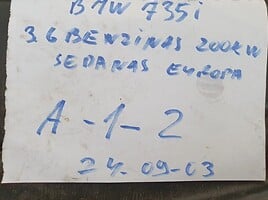 BMW 735i
3.6 BENZINAS 200KW
SEDANAS EUROPA
A-1-2
24-09-03